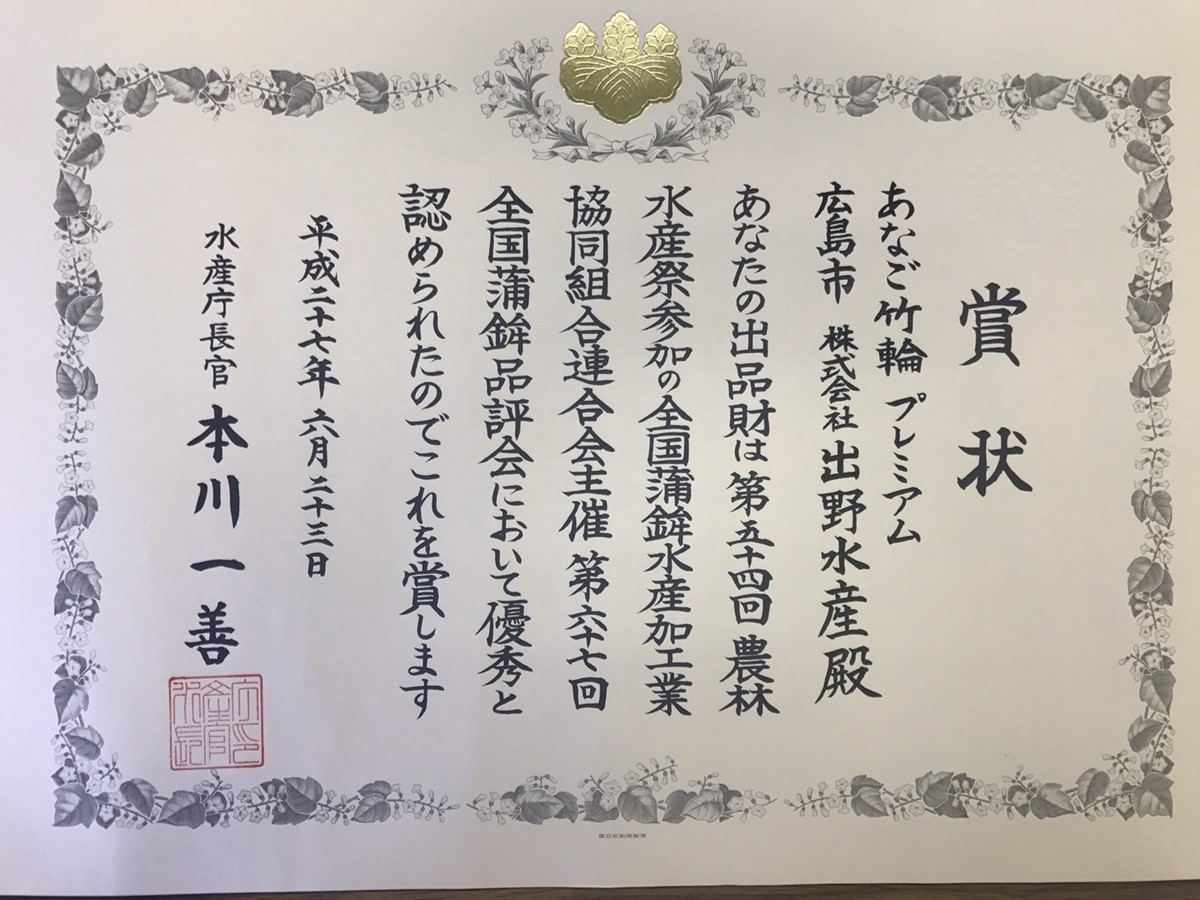 賞状
あなご竹輪 プレミアム
広島市 株式会社 出野水産殿
あなたの出品財は第五十四回農林
水産祭参加の全国蒲鉾水産加工業
協同組合連合会主催 第六十七回
全国蒲鉾品評会において優秀と
認められたのでこれを賞します
平成二十七年 六月二十三日
水産庁長官 本川一善